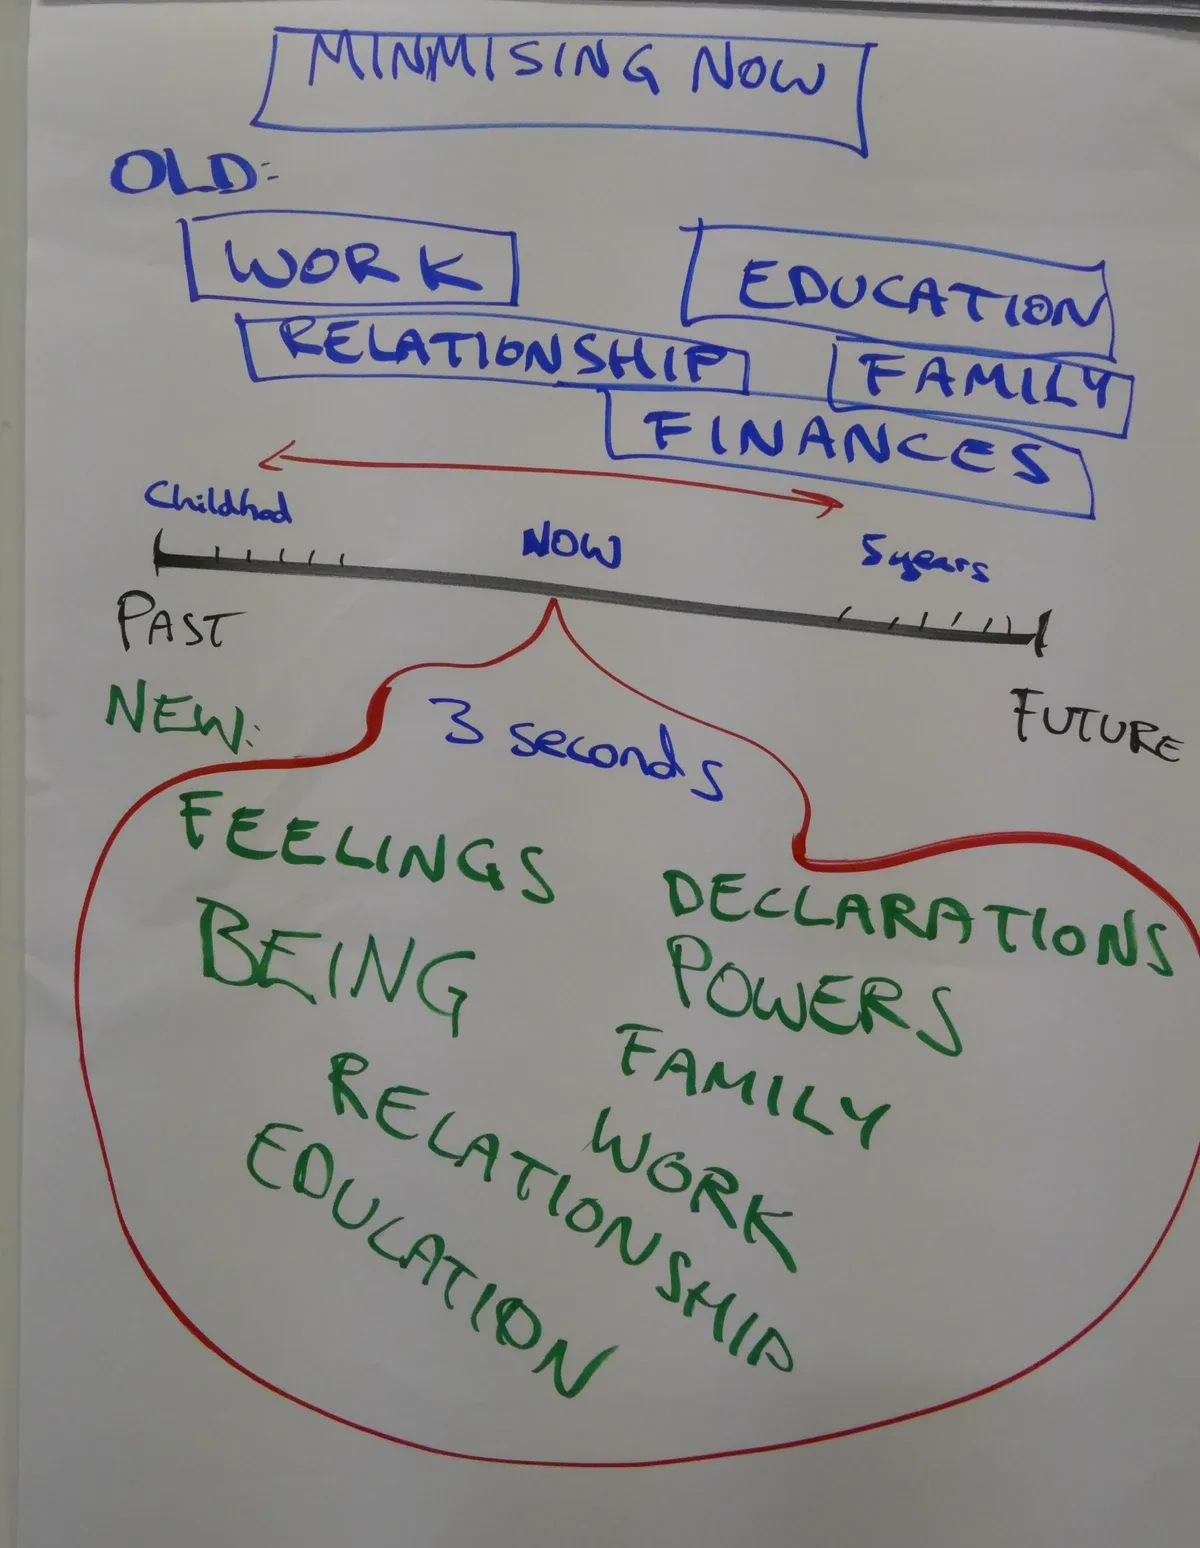 MINMISING NOW
OLD:
WORK
EDUCATION
RELATIONSHIP
FAMILY
FINANCES
Childhod
NOW
5 years
PAST
FUTURE
NEW:
3 seconds
FEELINGS
DECLARATIONS
BEING
POWERS
FAMILY
RELATIONSHIP
WORK
EDUCATION